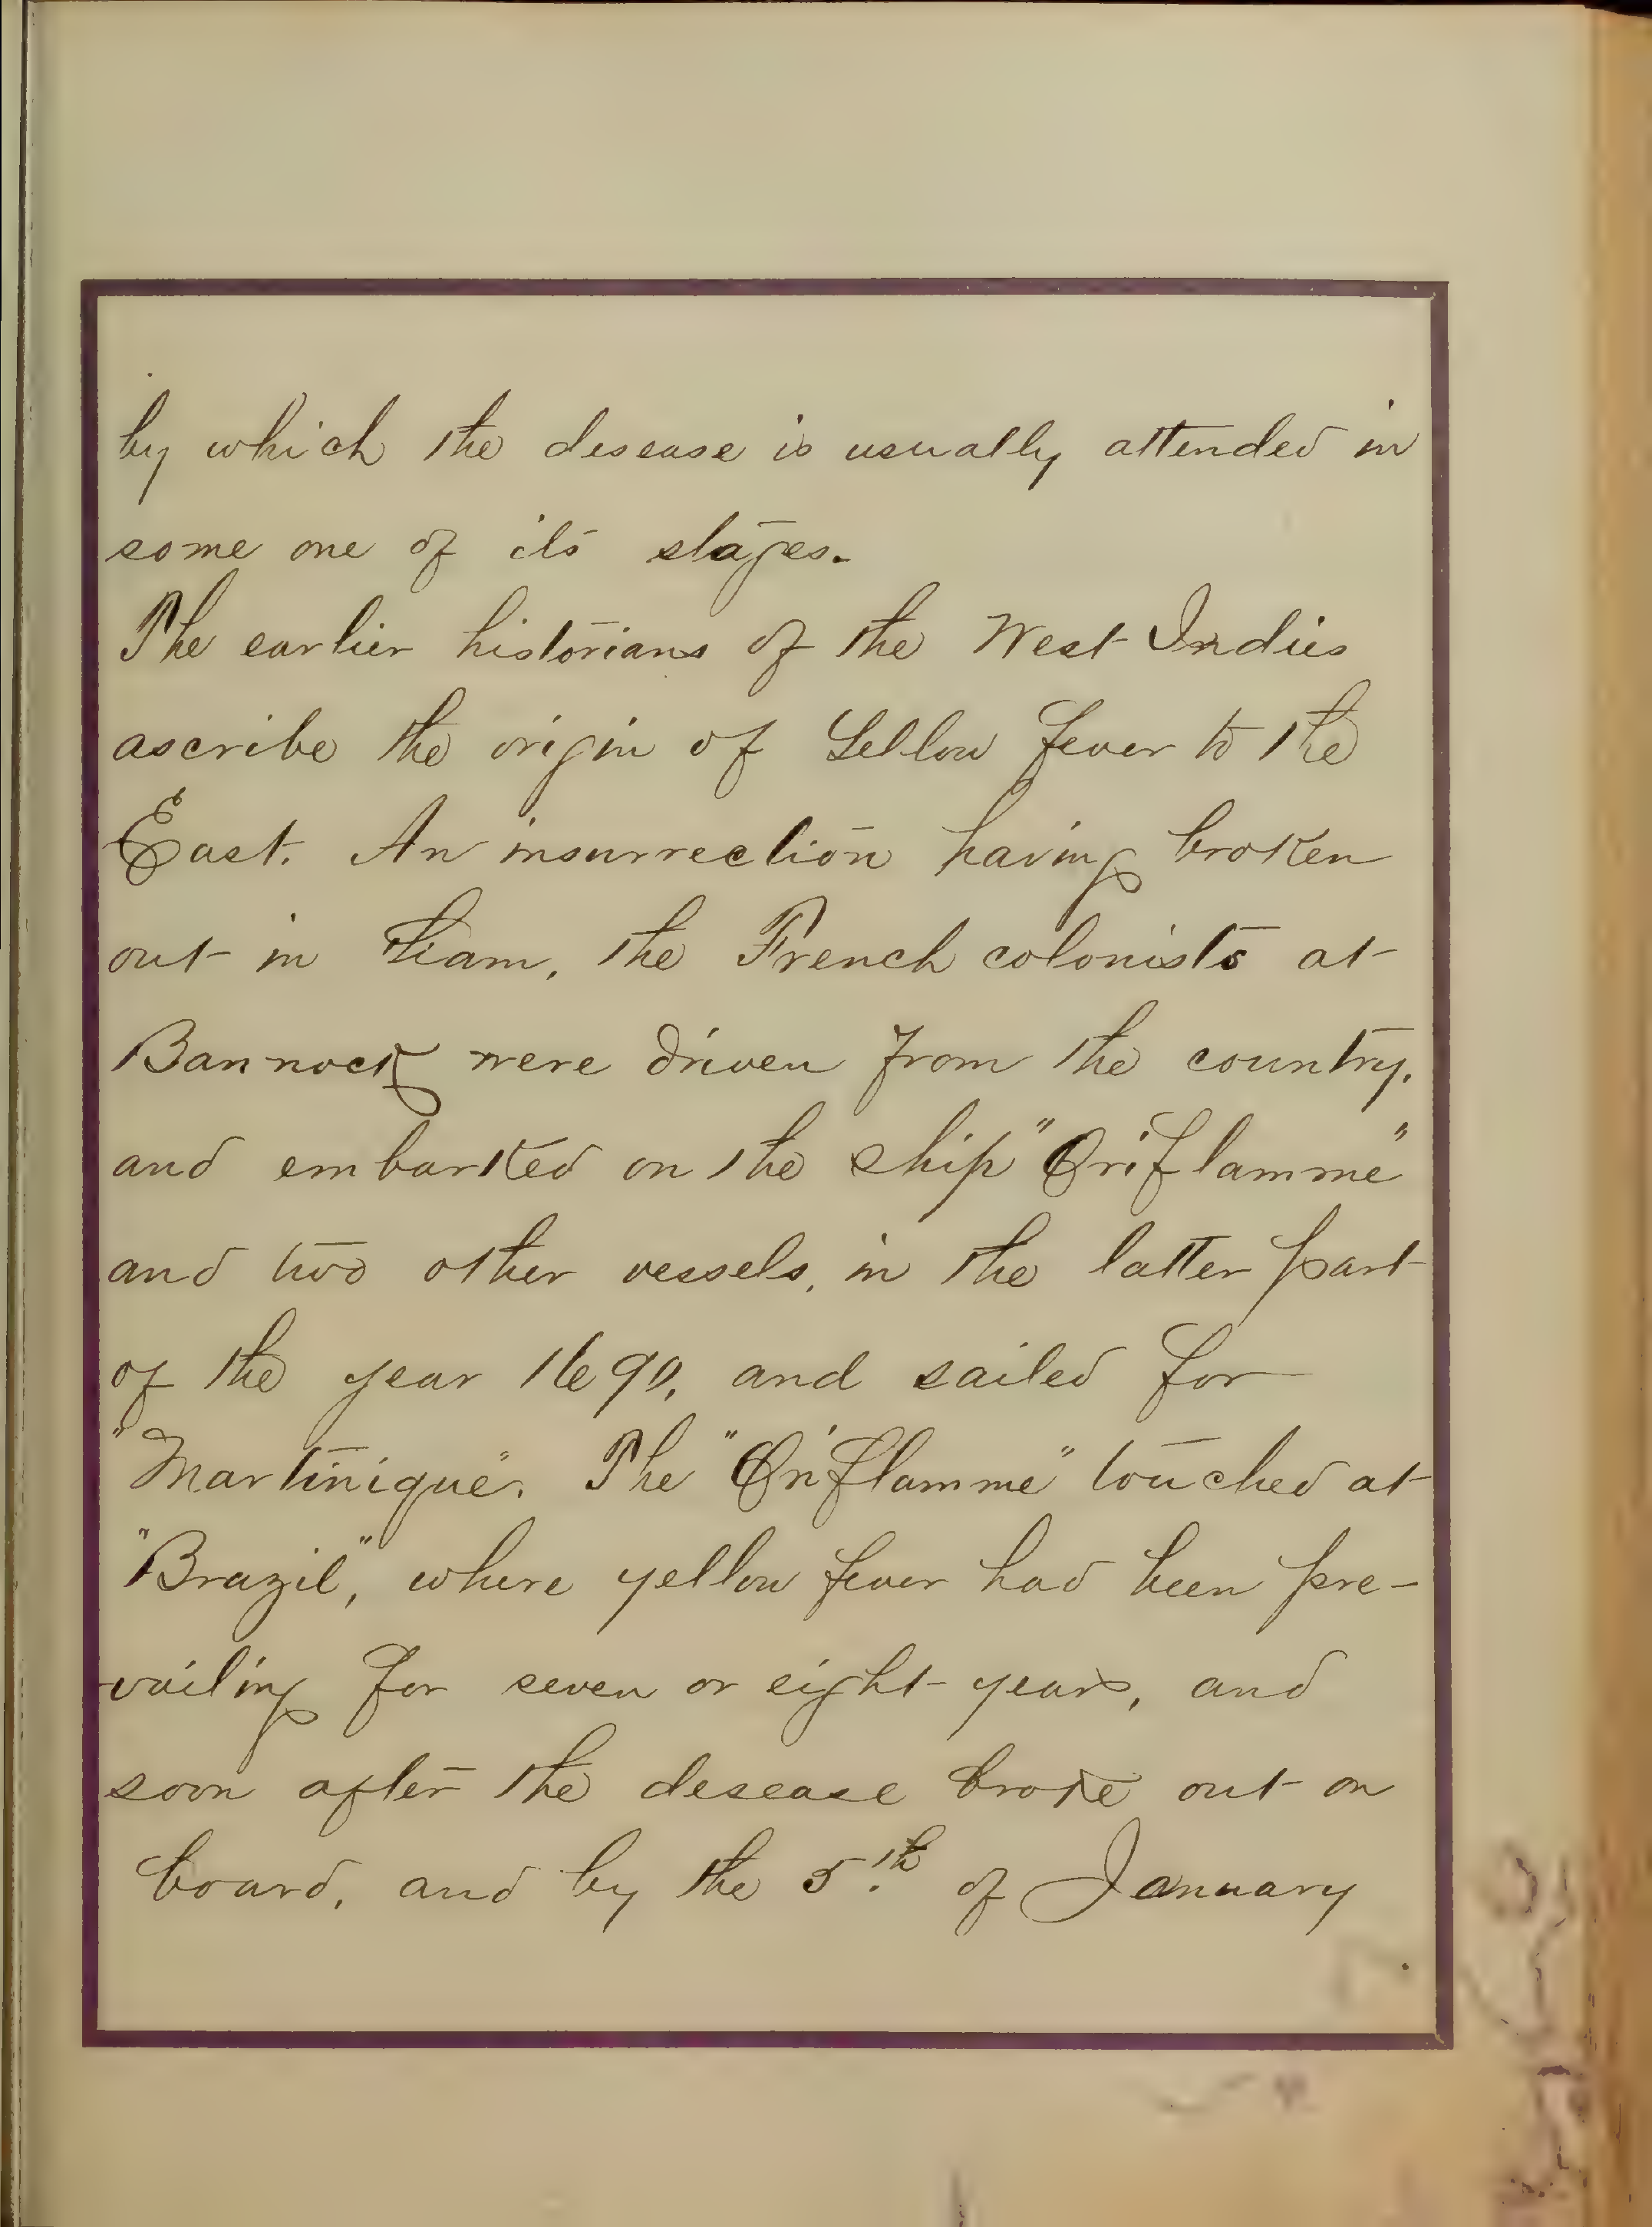 by which the desease is usually attended in
some one of its stages.
The earlier historians of the West Indies
ascribe the origin of Yellow fever to the
East. An insurrection having broken
out in Siam, the French colonists at
Bannock were driven from the country,
and embarked on the ship "Oriflamme"
and two other vessels, in the latter part
of the year 1690, and sailed for
"Martinique". The "Oriflamme" touched at
"Brazil", where yellow fever had been pre-
vailing for seven or eight years, and
soon after the desease broke out on
board, and by the 5.th of January